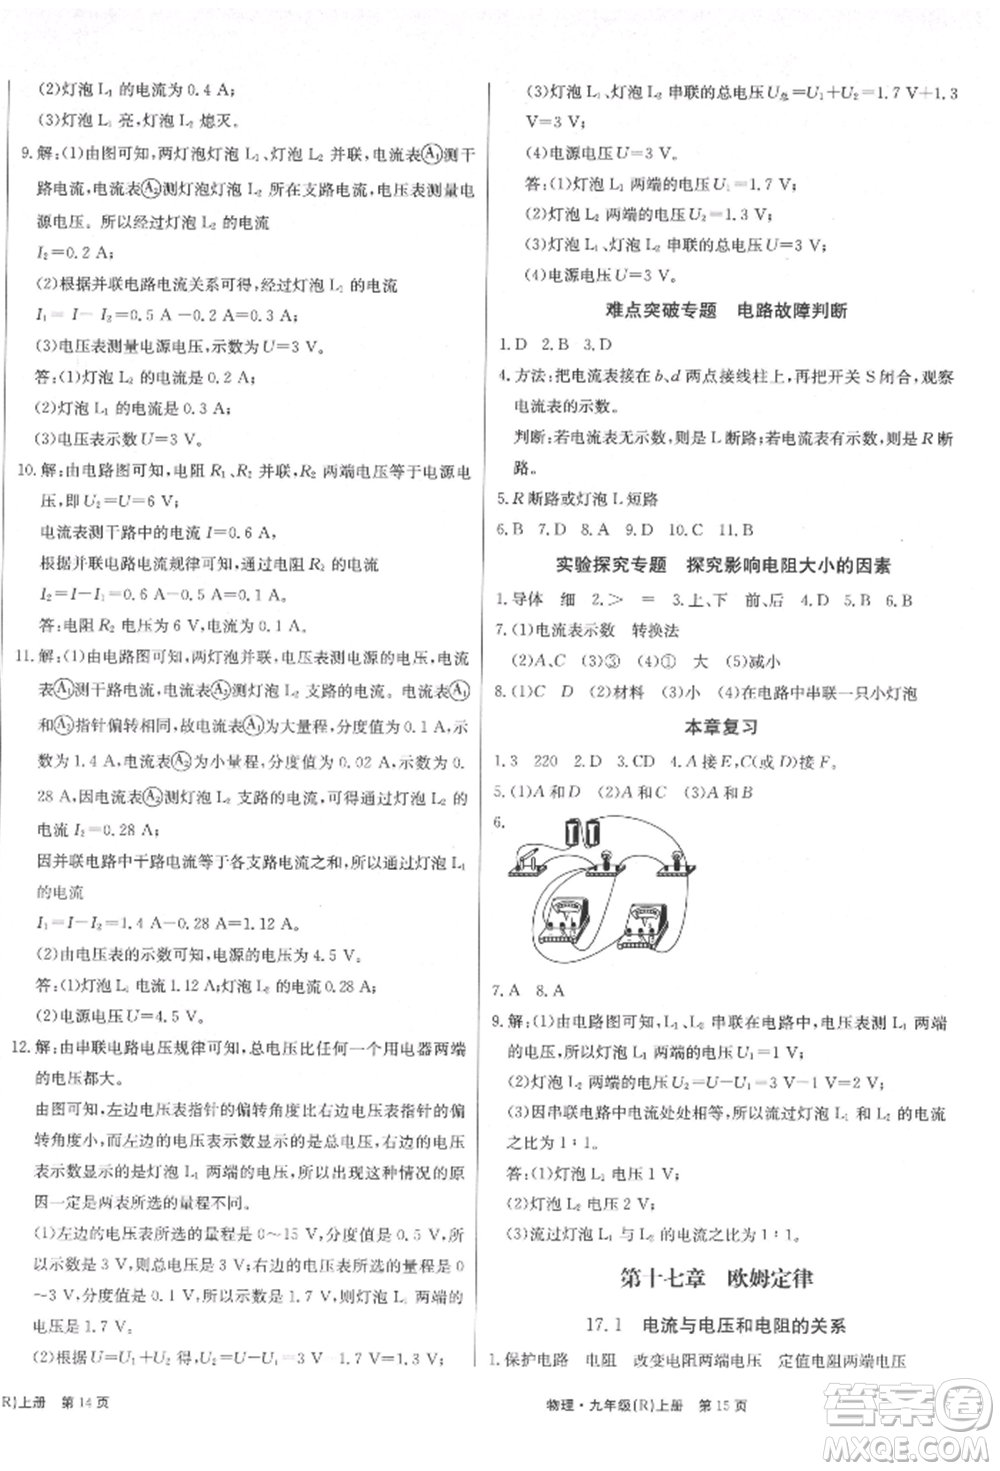 (2)灯泡 L₁ 的电流为 0.4 A;
(3)灯泡 L₁ 亮,灯泡 L₂ 熄灭。
9. 解:(1)由图可知,两灯泡灯泡 L₁、灯泡 L₂ 并联,电流表A₁测干
路电流,电流表A₂测灯泡灯泡 L₂ 所在支路电流,电压表测量电
源电压。所以经过灯泡 L₂ 的电流
I₂=0.2 A;
(2)根据并联电路电流关系可得,经过灯泡L₁的电流
I₁=I-I₂=0.5 A-0.2 A=0.3 A;
(3)电压表测量电源电压,示数为U=3 V。
答:(1)灯泡 L₂ 的电流是 0.2 A;
(2)灯泡 L₁ 的电流是 0.3 A;
(3)电压表示数U=3 V。
10. 解:由电路图可知,电阻 R₁、R₂ 并联,R₂ 两端电压等于电源电
压,即 U₂=U=6 V;
电流表测干路中的电流 I=0.6 A,
根据并联电路电流规律可知,通过电阻 R₂ 的电流
I₂=I-I₁=0.6 A-0.5 A=0.1 A。
答:电阻 R₂ 电压为 6 V,电流为 0.1 A。
11. 解:(1)由电路图可知,两灯泡并联,电压表测电源的电压,电流
表A₁测干路电流,电流表A₂测灯泡 L₂ 支路的电流。电流表A₁
和A₂指针偏转相同,故电流表A₁为大量程,分度值为 0.1 A,示
数为 1.4 A,电流表A₂为小量程,分度值为 0.02 A,示数为 0.
28 A,因电流表A₂测灯泡 L₂ 支路的电流,可得通过灯泡 L₂ 的
电流 I₂=0.28 A;
因并联电路中干路电流等于各支路电流之和,所以通过灯泡 L₁
的电流
I₁=I-I₂=1.4 A-0.28 A=1.12 A。
(2)由电压表的示数可知,电源的电压为 4.5 V。
答:(1)灯泡 L₁ 电流 1.12 A;灯泡 L₂ 电流 0.28 A;
(2)电源电压U=4.5 V。
12. 解:由串联电路电压规律可知,总电压比任何一个用电器两端
的电压都大。
由图可知,左边电压表指针的偏转角度比右边电压表指针的偏
转角度小,而左边的电压表示数显示的是总电压,右边的电压
表示数显示的是灯泡 L₁ 两端的电压,所以出现这种情况的原
因一定是两表所选的量程不同。
(1)左边的电压表所选的量程是 0～15 V,分度值是 0.5 V,示
数是 3 V,则总电压 U=3 V;右边的电压表所选的量程是
0～3 V,分度值是 0.1 V,示数是 1.7 V,则灯泡 L₁ 两端的电压
为 1.7 V。
(2)根据 U=U₁+U₂ 得,灯泡 L₂ 两端的电压 U₂=U-U₁=3 V
-1.7 V=1.3 V。
R)上册 第 14 页
(3)灯泡 L₁、灯泡 L₂ 串联的总电压U总=U₁+U₂=1.7 V+1.3
V=3 V。
(4)电源电压U=3 V。
答:(1)灯泡 L₁ 两端的电压 U₁=1.7 V;
(2)灯泡 L₂ 两端的电压 U₂=1.3 V;
(3)灯泡 L₁、灯泡 L₂ 串联的总电压U总=3 V;
(4)电源电压U=3 V。
难点突破专题 电路故障判断
1. D 2. B 3. D
4. 方法:把电流表接在 b、d 两点接线柱上,再把开关 S 闭合,观察
电流表的示数。
判断:若电流表无示数,则是 L 断路;若电流表有示数,则是 R 断
路。
5. R 断路或灯泡 L 短路
6. B 7. D 8. A 9. D 10. C 11. B
实验探究专题 探究影响电阻大小的因素
1. 导体 细 2. > = 3. 上、下 前、后 4. D 5. B 6. B
7. (1)电流表示数 转换法
(2)A、C (3)③ (4)① 大 (5)减小
8. (1)C D (2)材料 (3)小 (4)在电路中串联一只小灯泡
本章复习
1. 3 220 2. D 3. CD 4. A 接 E,C(或 D)接 F。
5. (1)A 和 D (2)A 和 B (3)A 和 C
6.
7. A 8. A
9. 解:(1)由电路图可知,L₁、L₂ 串联在电路中,电压表测 L₁ 两端
的电压,所以灯泡 L₁ 两端的电压 U₁=1 V;
(2)灯泡 L₂ 两端的电压 U₂=U-U₁=3 V-1 V=2 V;
(3)因串联电路中电流处处相等,所以流过灯泡 L₁ 和 L₂ 的电流
之比为 1∶1。
答:(1)灯泡 L₁ 电压 1 V;
(2)灯泡 L₂ 电压 2 V;
(3)流过灯泡 L₁ 与 L₂ 的电流之比为 1∶1。
第十七章 欧姆定律
17.1 电流与电压和电阻的关系
1. 保护电路 电阻 改变电阻两端电压 定值电阻两端电压
物理·九年级(R)上册 第 15 页
答案圈
MXQE.COM